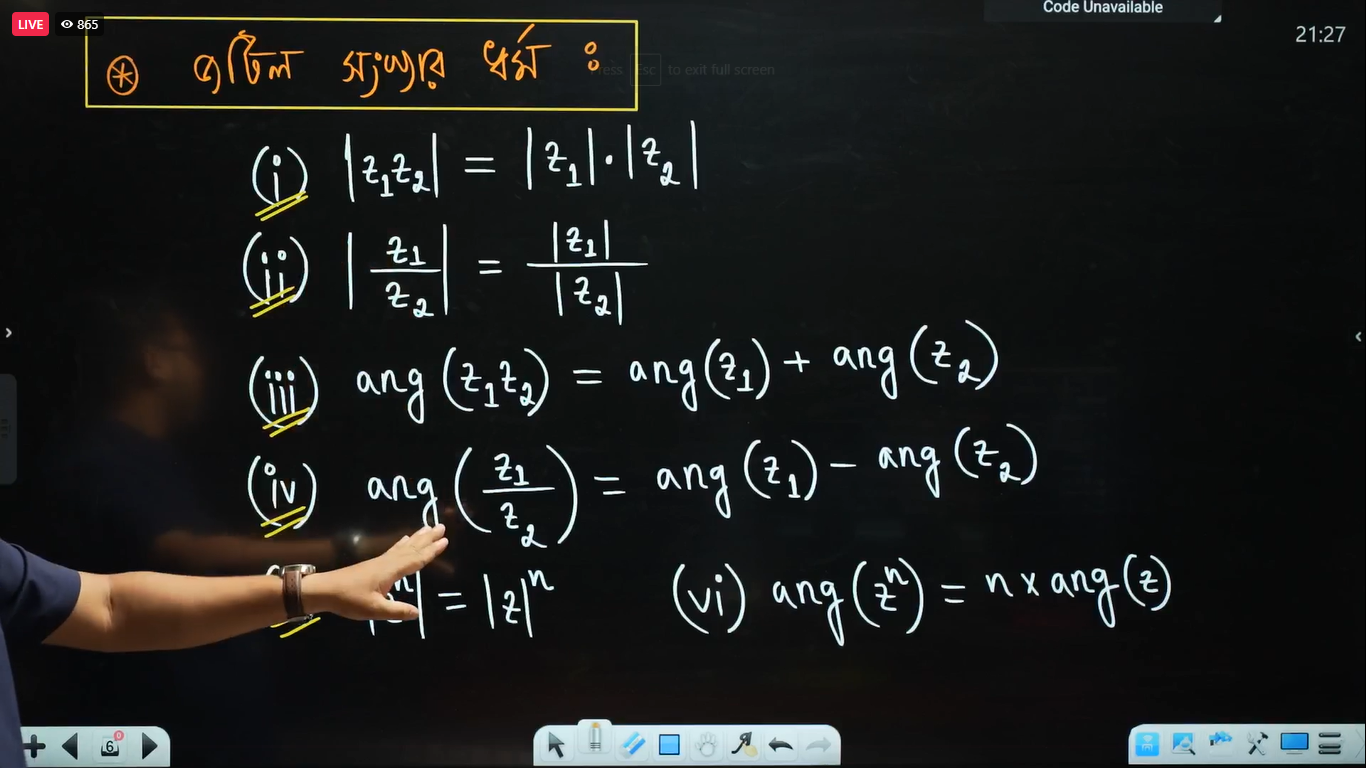 LIVE 865
Code Unavailable
21:27
Press Esc to exit full screen
* জটিল সংখ্যার ধর্ম :
(i) |z₁z₂| = |z₁|·|z₂|
(ii) |z₁/z₂| = |z₁|/|z₂|
(iii) arg(z₁z₂) = arg(z₁) + arg(z₂)
(iv) arg(z₁/z₂) = arg(z₁) − arg(z₂)
ⁿ| = |z|ⁿ (vi) arg(zⁿ) = n × arg(z)
6 0